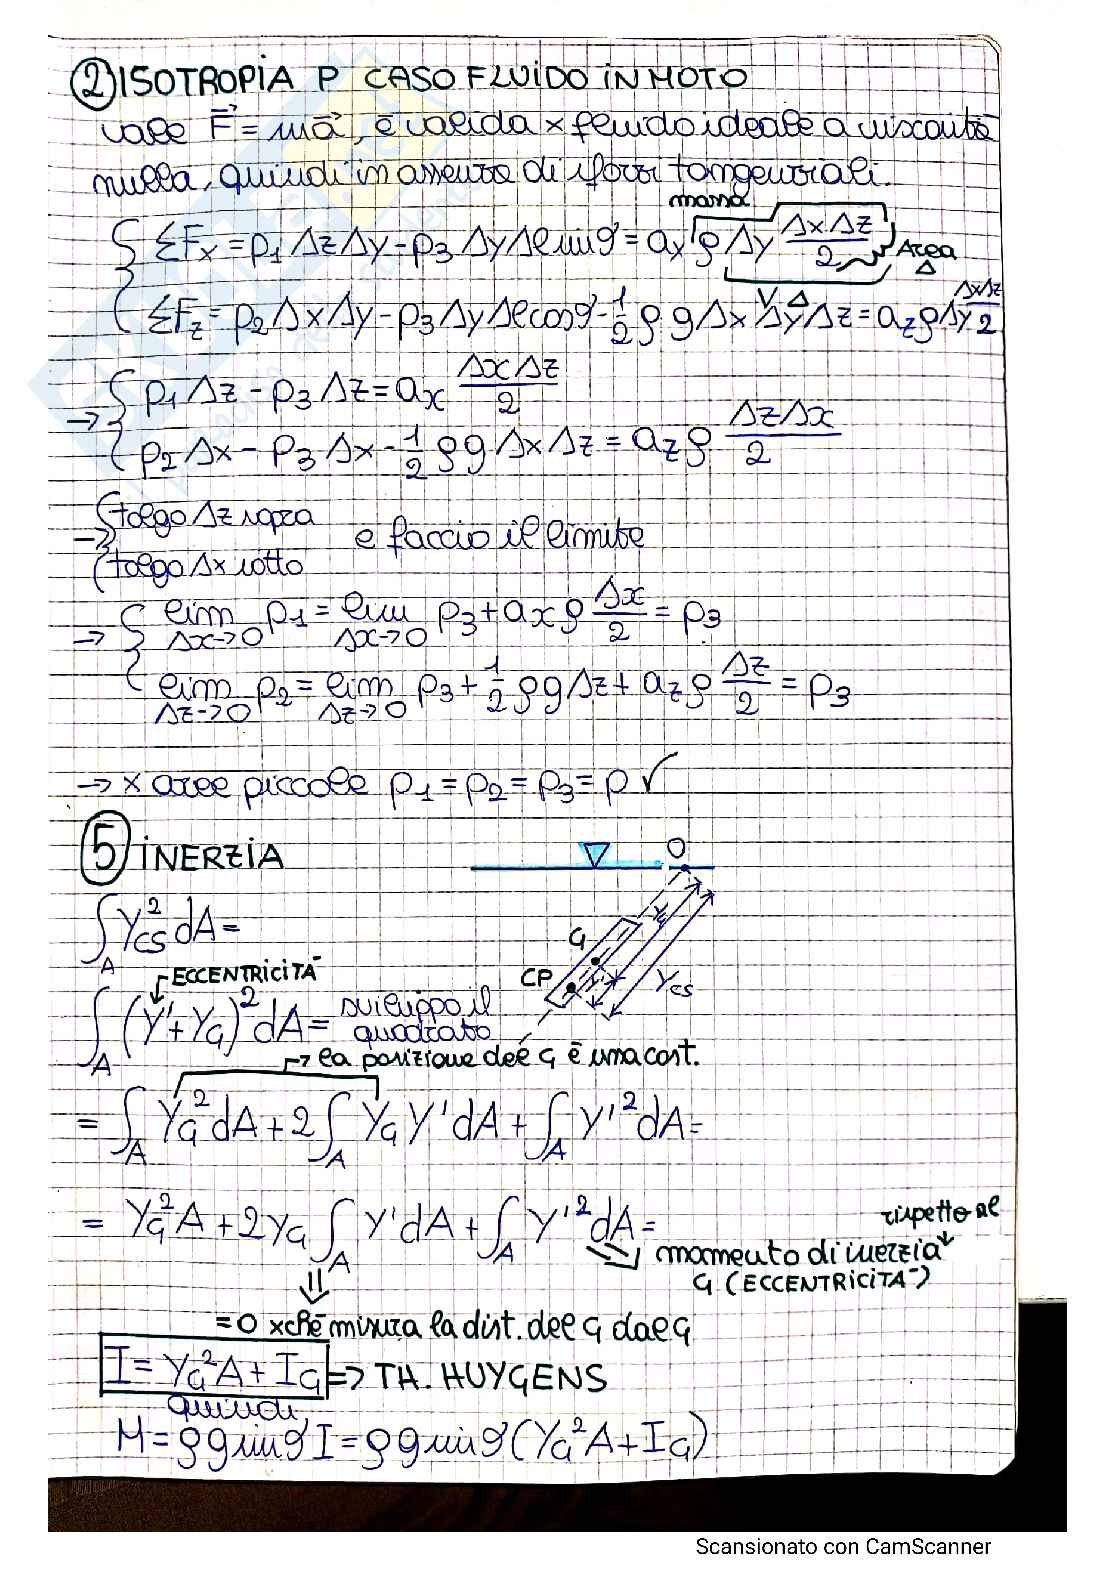 ② ISOTROPIA P CASO FLUIDO IN MOTO
vale F⃗ = ma⃗, è valida x fluido ideale a viscosità
nulla, quindi in assenza di sforzi tangenziali.
massa
ΣFx = p1 Δz Δy - p3 Δy Δl sinϑ = ax ρ Δy ΔxΔz/2
Area Δ
V Δ
ΣFz = p2 Δx Δy - p3 Δy Δl cosϑ - 1/2 ρ g Δx Δy Δz = az ρ Δy ΔxΔz/2
→ { p1 Δz - p3 Δz = ax ΔxΔz/2
p2 Δx - p3 Δx - 1/2 ρg Δx Δz = az ρ ΔzΔx/2
→ { tolgo Δz sopra
e faccio il limite
tolgo Δx sotto
→ { lim Δx→0 p1 = lim Δx→0 p3 + ax ρ Δx/2 = p3
lim Δz→0 p2 = lim Δz→0 p3 + 1/2 ρg Δz + az ρ Δz/2 = p3
→ x aree piccole p1 = p2 = p3 = p ✓
⑤ INERZIA
O
G
CP
YG
Y'
YCS
∫A YCS² dA =
ECCENTRICITÀ
∫A (Y' + YG)² dA = sviluppo il quadrato
→ la posizione del G è una cost.
= ∫A YG² dA + 2 ∫A YG Y' dA + ∫A Y'² dA =
= YG² A + 2YG ∫A Y' dA + ∫A Y'² dA =
rispetto al
momento di inerzia
G (ECCENTRICITÀ)
= 0 xchè misura la dist. del G dal G
I = YG² A + IG => TH. HUYGENS
quindi,
M = ρg sinϑ I = ρg sinϑ (YG² A + IG)
Scansionato con CamScanner